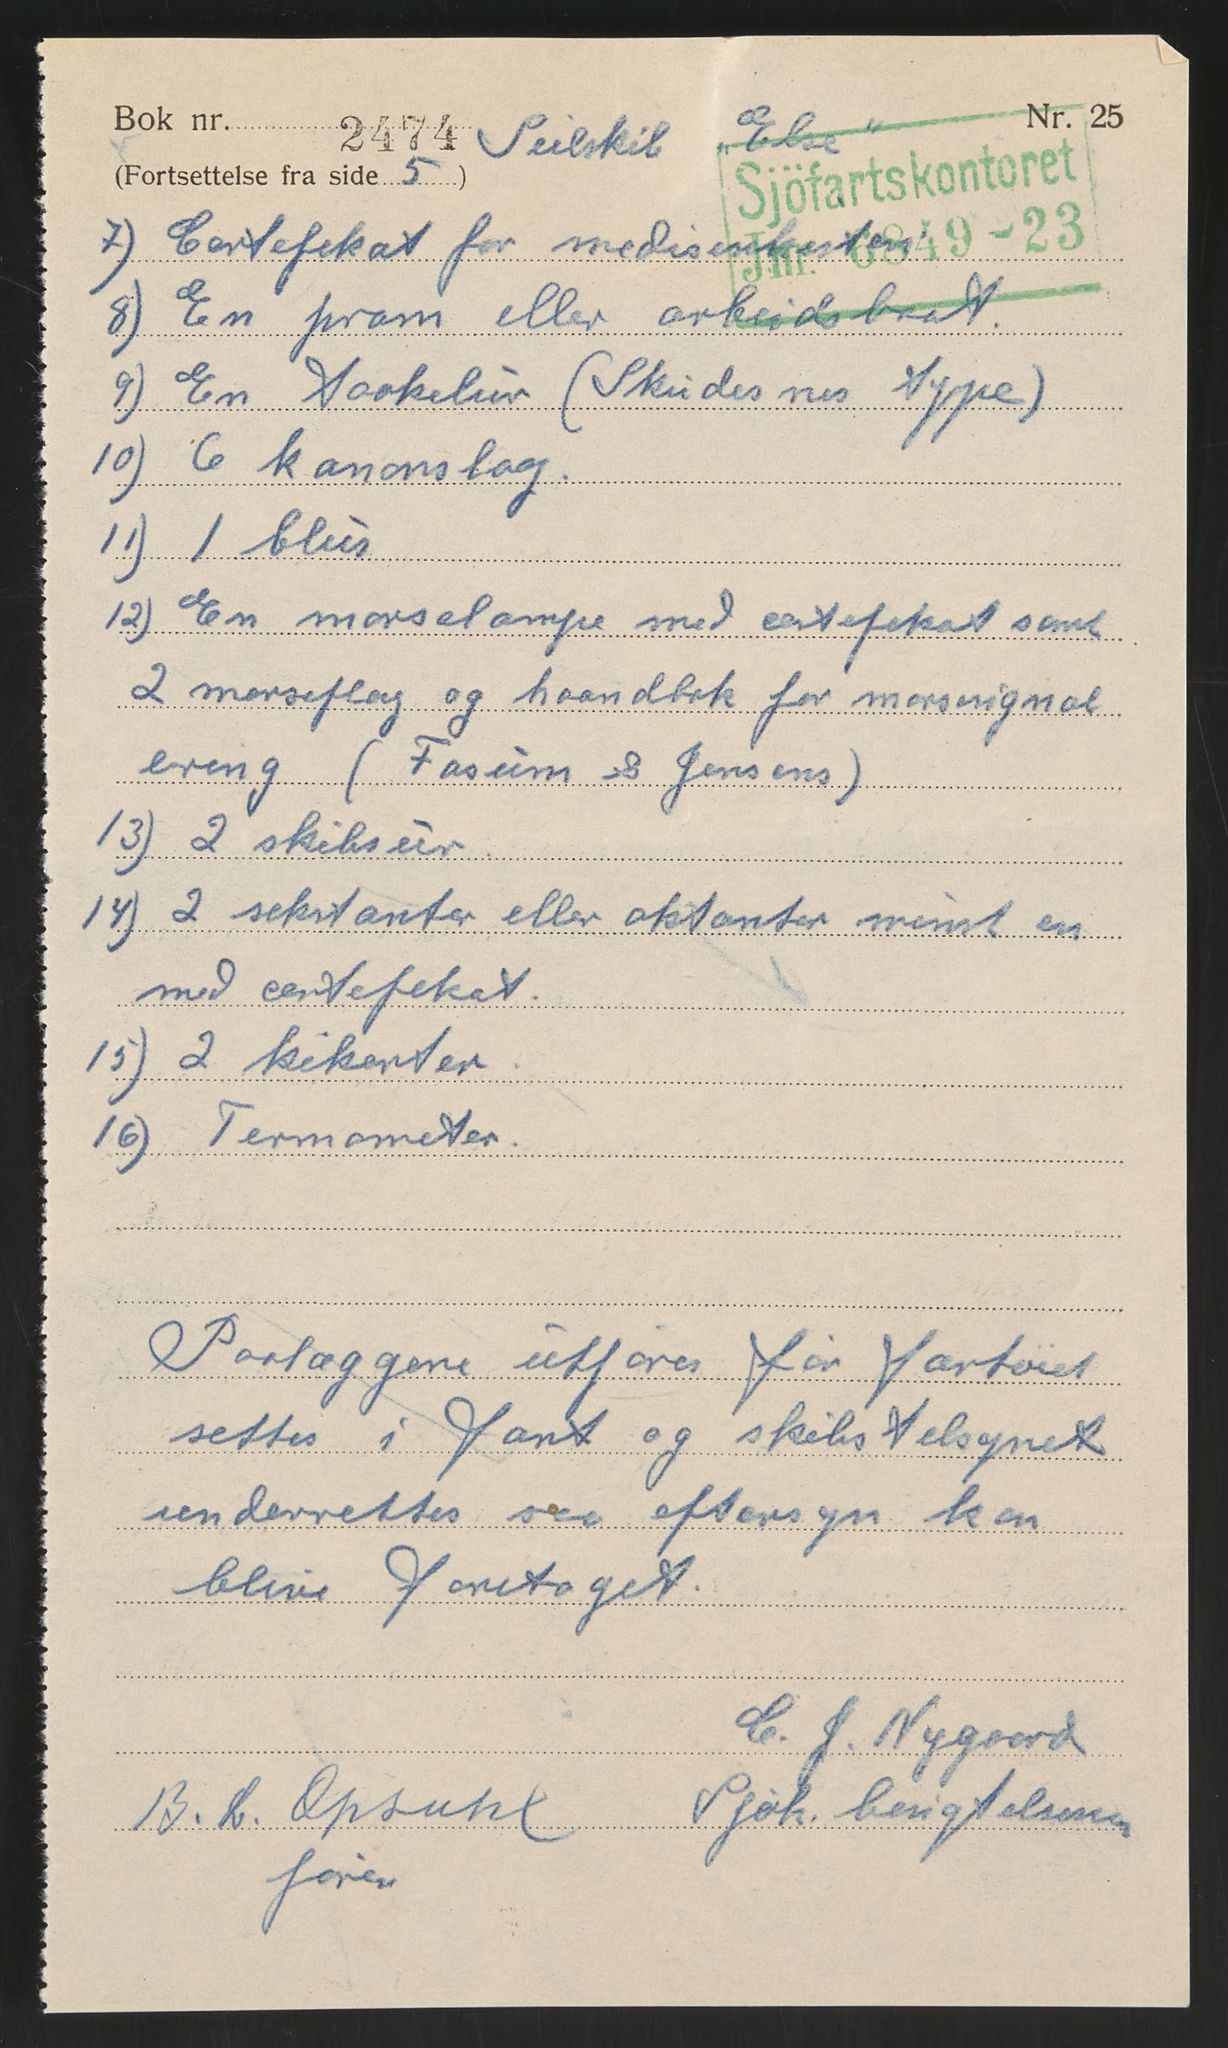 Bok nr. 2474 Seilskib "Else" Nr. 25
(Fortsettelse fra side 5)
Sjöfartskontoret
Jnr. 6849-23
7) Certefekat for medisenkisten
8) En pram eller arbeidsbaat.
9) En taakelur (Skudesnes type)
10) 6 kanonslag.
11) 1 blus
12) En morselampe med certefekat samt
2 morseflag og haandbok for morsesignal
ering (Fasum & Jensens)
13) 2 skibsur.
14) 2 sekstanter eller oktanter minst en
med certefekat.
15) 2 kikerter.
16) Termometer.
Paalæggene utføres før fartøiet
settes i fart og skibstelsynet
underrettes saa eftersyn kan
blive foretaget.
C. J. Nygaard
B. L. Opsahl Sjøk. besigtelsesm
fører